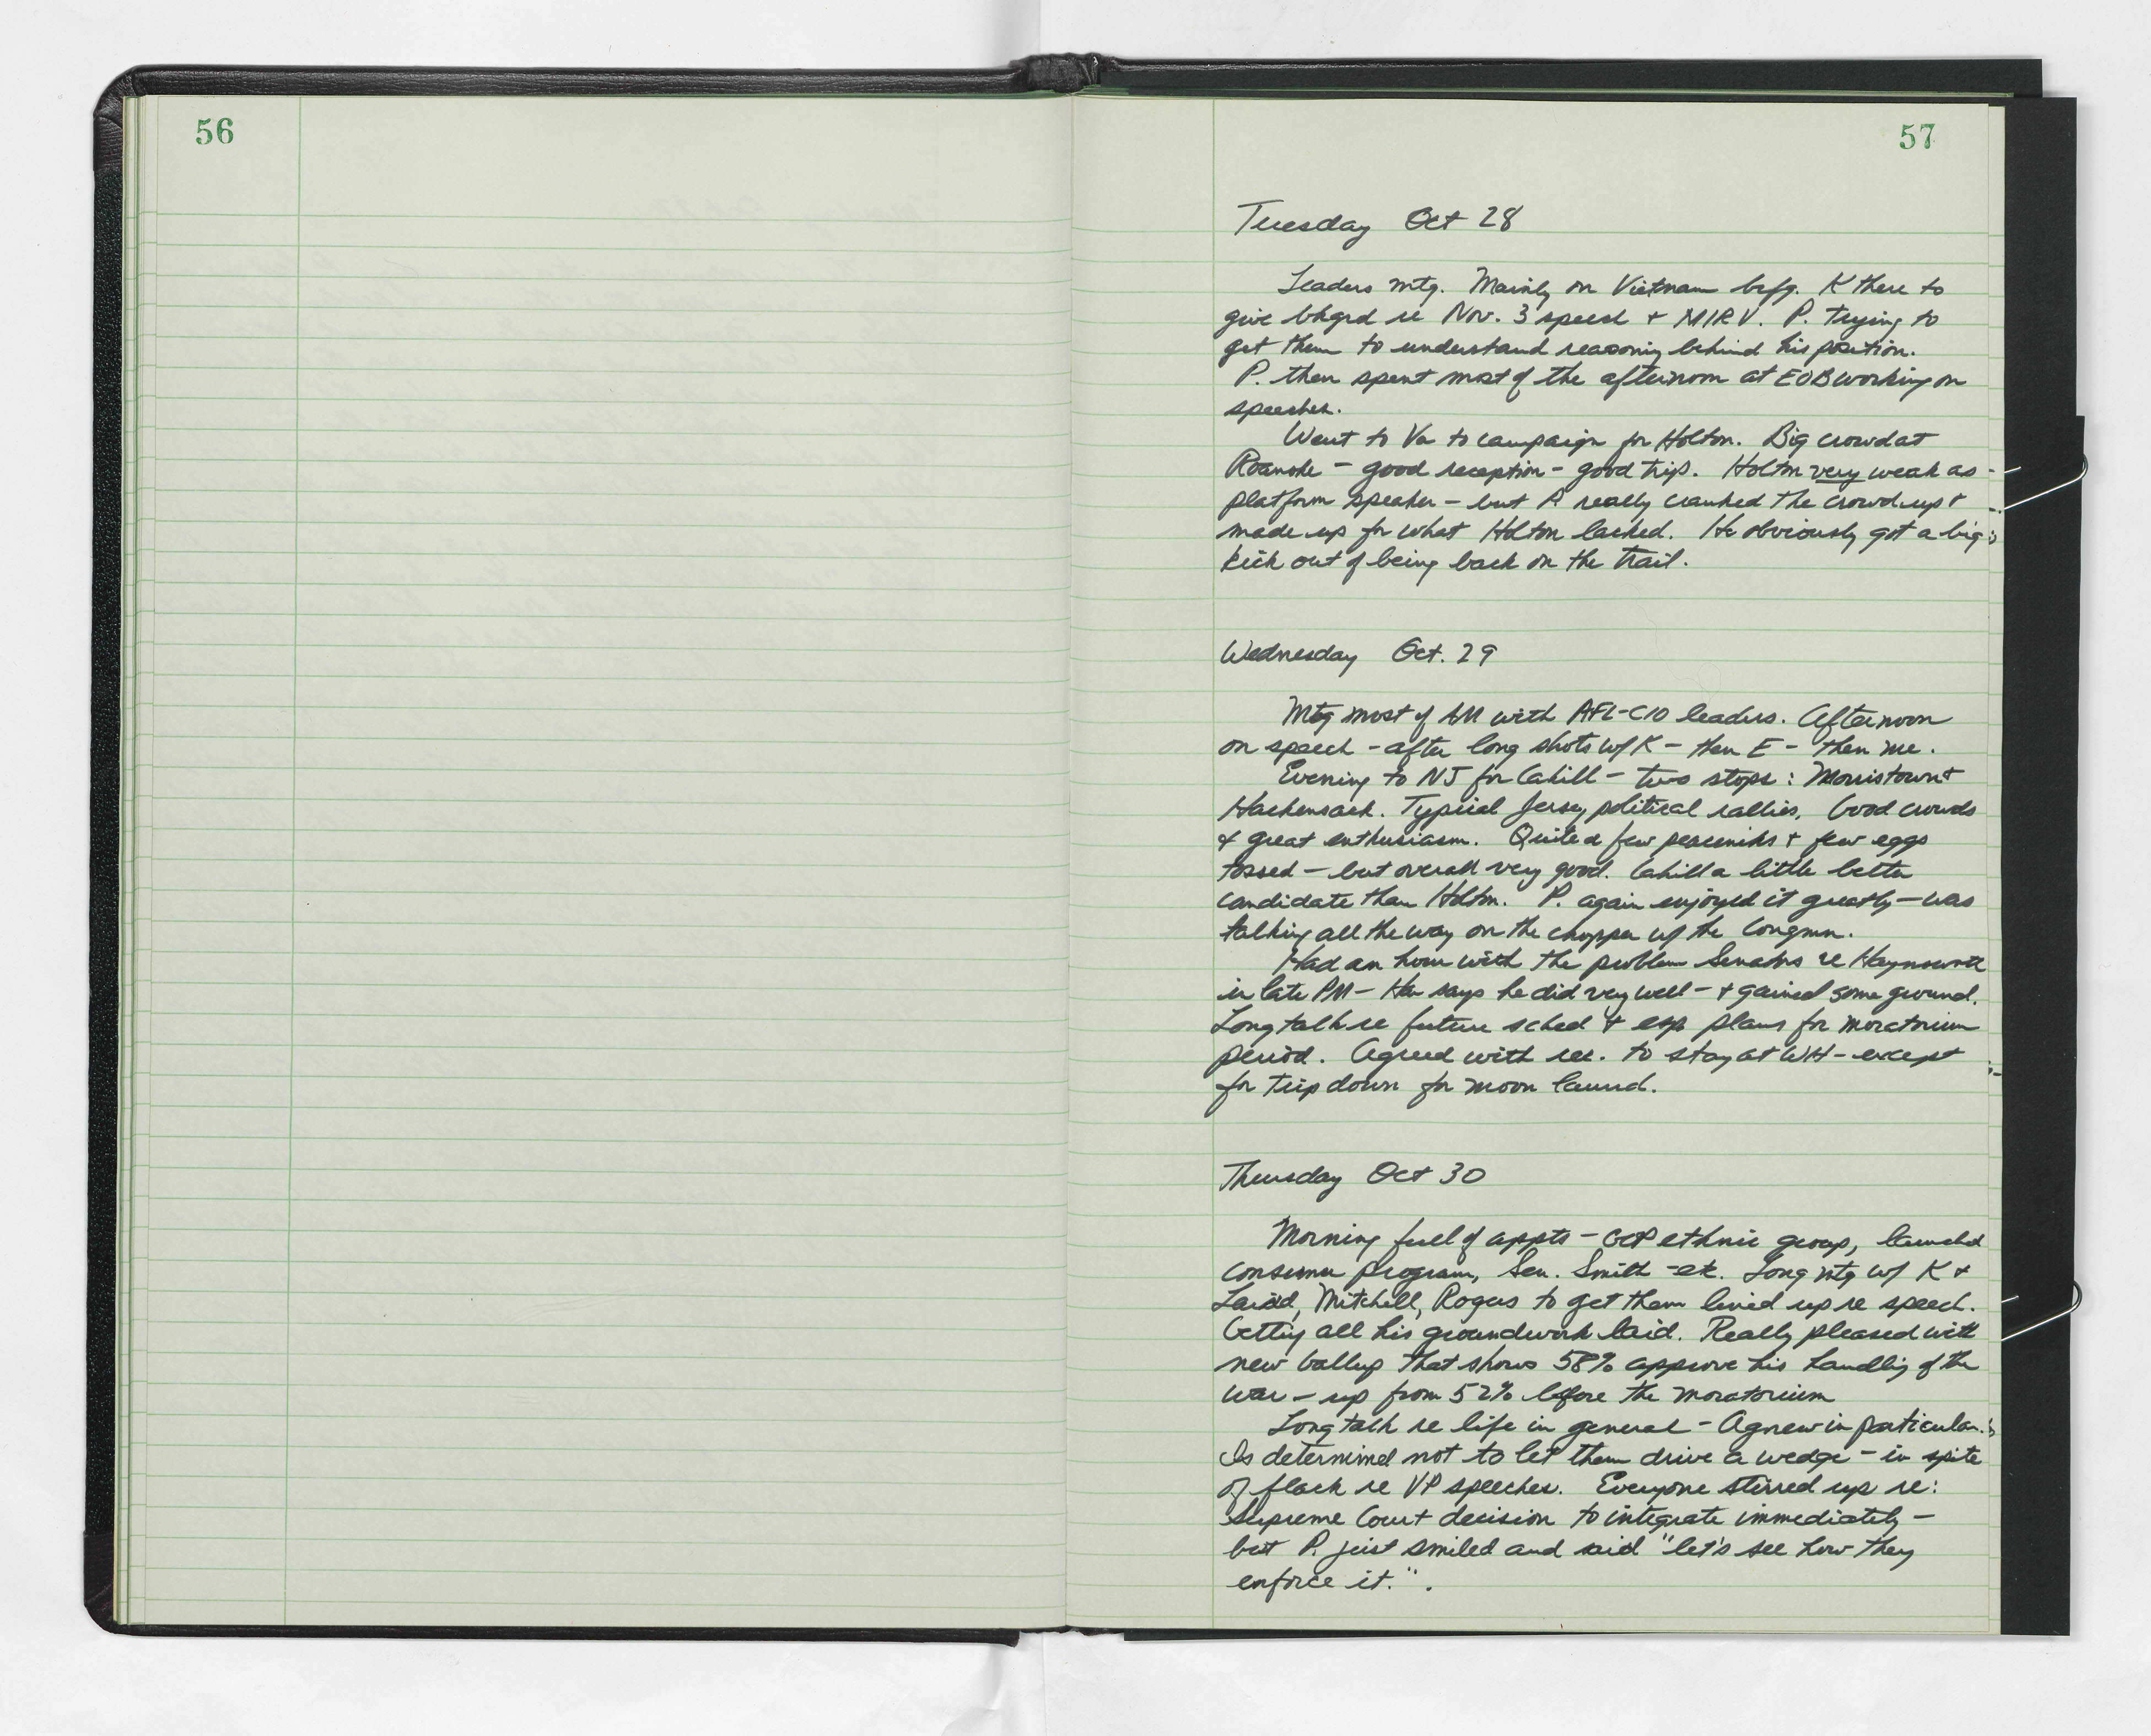 56
57
Tuesday Oct 28
Leaders mtg. Mainly on Vietnam brfg. K there to
give bkgrd re Nov. 3 speech + MIRV. P. trying to
get them to understand reasoning behind his position.
P. then spent most of the afternoon at EOB working on
speeches.
Went to Va to campaign for Holton. Big crowd at
Roanoke - good reception - good trip. Holton very weak as
platform speaker - but P. really cranked the crowd up +
made up for what Holton lacked. He obviously got a big
kick out of being back on the trail.
Wednesday Oct. 29
Mtg most of AM with AFL-CIO leaders. Afternoon
on speech - after long shots w/ K - then E - then me.
Evening to NJ for Cahill - two stops: Morristown +
Hackensack. Typical Jersey political rallies. Good crowds
+ great enthusiasm. Quite a few peaceniks + few eggs
tossed - but overall very good. Cahill a little better
candidate than Holton. P. again enjoyed it greatly - was
talking all the way on the chopper w/ the Congmn.
Had an hour with the problem Senators re Haynsworth
in late PM - Har says he did very well - + gained some ground.
Long talk re future sched + esp plans for moratorium
period. Agreed with rec. to stay at WH - except
for trip down for moon launch.
Thursday Oct 30
Morning full of appts - GOP ethnic group, launched
consumer program, Sen. Smith - etc. Long mtg w/ K +
Laird, Mitchell, Rogers to get them lined up re speech.
Getting all his groundwork laid. Really pleased with
new Gallup that shows 58% approve his handling of the
war - up from 52% before the moratorium
Long talk re life in general - Agnew in particular.
Is determined not to let them drive a wedge - in spite
of flack re VP speeches. Everyone stirred up re:
Supreme Court decision to integrate immediately -
but P. just smiled and said "let's see how they
enforce it.".